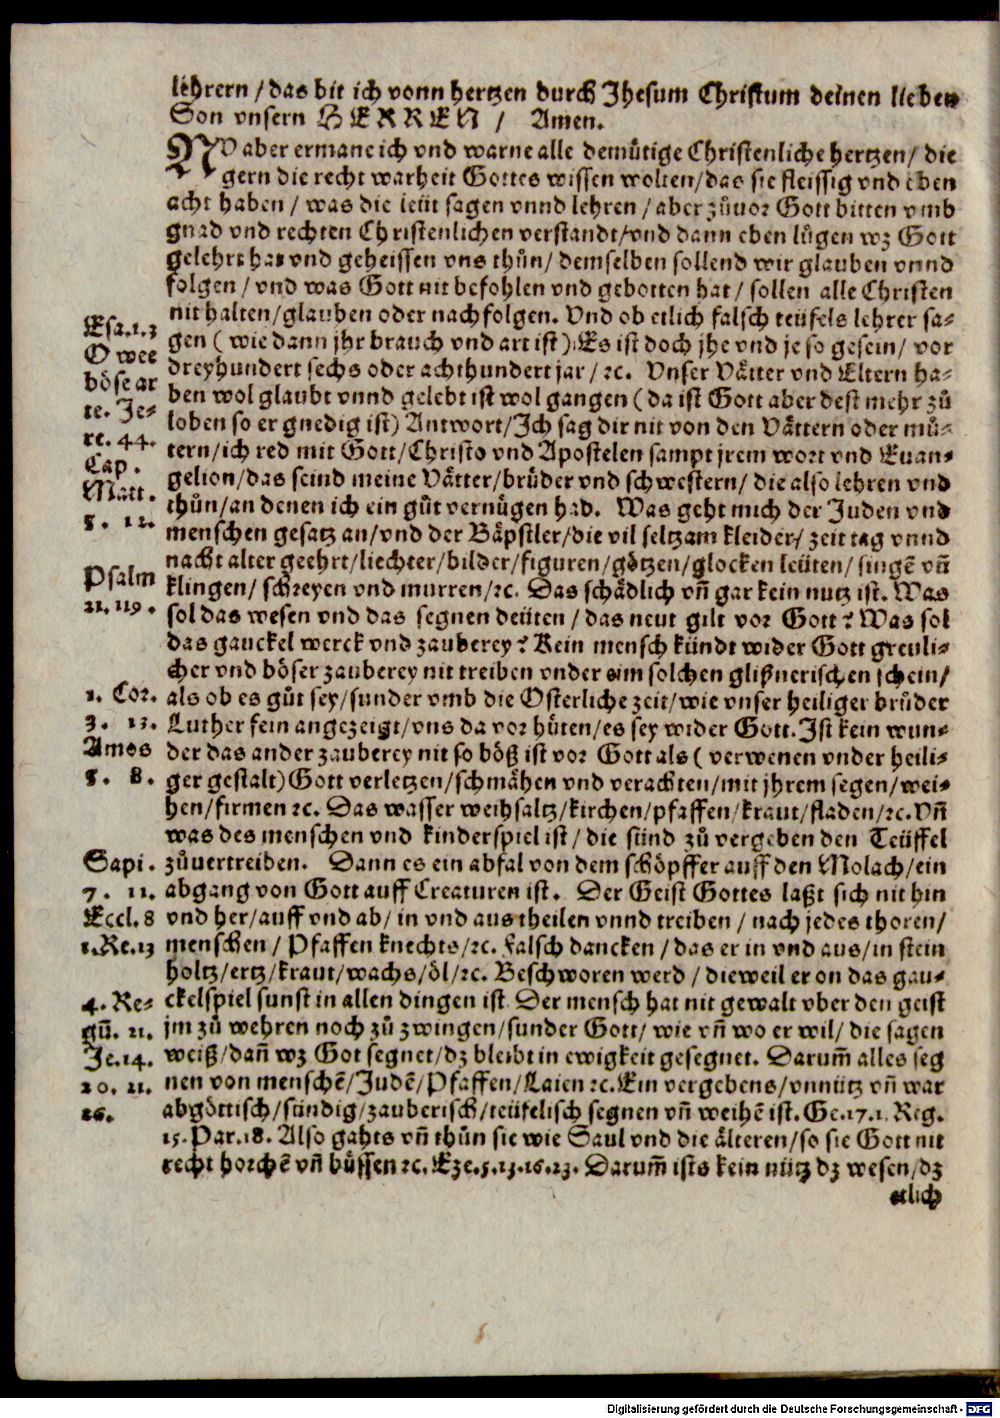 lehrern / das bit ich vonn hertzen durch Jhesum Christum deinen lieben
Son vnsern HERREN / Amen.
NV aber ermane ich vnd warne alle demütige Christenliche hertzen / die
gern die recht warheit Gottes wissen wolten / das sie fleissig vnd eben
acht haben / was die leüt sagen vnnd lehren / aber züuor Gott bitten vmb
gnad vnd rechten Christenlichen verstandt / vnd dann eben lügen wz Gott
gelehrt hat vnd geheissen vns thün / demselben sollend wir glauben vnnd
folgen / vnd was Gott nit befohlen vnd gebotten hat / sollen alle Christen
nit halten / glauben oder nachfolgen. Vnd ob etlich falsch teüfels lehrer sa-
gen ( wie dann jhr brauch vnd art ist ) Es ist doch jhe vnd je so gesein / vor
dreyhundert sechs oder achthundert jar / ꝛc. Vnser Vätter vnd Eltern ha-
ben wol glaubt vnnd gelebt ist wol gangen ( da ist Gott aber dest mehr zü
loben so er gnedig ist ) Antwort / Ich sag dir nit von den Vättern oder mü-
tern / ich red mit Gott / Christo vnd Apostelen sampt jrem wort vnd Euan-
gelion / das seind meine Vätter / brüder vnd schwestern / die also lehren vnd
thün / an denen ich ein güt vernügen hab. Was geht mich der Juden vnd
menschen gesatz an / vnd der Bäpstler / die vil seltzam kleider / zeit tag vnnd
nacht alter geehrt / liechter / bilder / figuren / götzen / glocken leüten / singē vñ
klingen / schreyen vnd murren / ꝛc. Das schädlich vñ gar kein nutz ist. Was
sol das wesen vnd das segnen deüten / das neut gilt vor Gott? Was sol
das gauckel werck vnd zauberey? Kein mensch kündt wider Gott greuli-
cher vnd böser zauberey nit treiben vnder eim solchen glißnerischen schein /
als ob es güt sey / sunder vmb die Osterliche zeit / wie vnser heiliger brüder
Luther fein angezeigt / vns da vor hüten / es sey wider Gott. Ist kein wun-
der das ander zauberey nit so böß ist vor Gott als ( verwenen vnder heili-
ger gestalt ) Gott verletzen / schmähen vnd verachten / mit jhrem segen / wei-
hen / firmen ꝛc. Das wasser weihsaltz / kirchen / pfaffen / kraut / fladen / ꝛc. Vñ
was des menschen vnd kinderspiel ist / die sünd zü vergeben den Teüffel
züuertreiben. Dann es ein abfal von dem schöpffer auff den Molach / ein
abgang von Gott auff Creaturen ist. Der Geist Gottes laßt sich nit hin
vnd her / auff vnd ab / in vnd aus theilen vnnd treiben / nach jedes thoren /
menschen / Pfaffen knechts / ꝛc. falsch dancken / das er in vnd aus / in stein
holtz / ertz / kraut / wachs / öl / ꝛc. Beschworen werd / dieweil er on das gau-
ckelspiel sunst in allen dingen ist Der mensch hat nit gewalt vber den geist
jm zü wehren noch zü zwingen / sunder Gott / wie vñ wo er wil / die sagen
weiß / dañ wz Got segnet / dz bleibt in ewigkeit gesegnet. Darum̄ alles seg
nen von menschē / Judē / Pfaffen / Laien ꝛc. Ein vergebens / vnnütz vñ war
abgöttisch / sündig / zauberisch / teüfelisch segnen vñ weihē ist. Ge. 17. 1. Reg.
15. Par. 18. Also gahts vñ thün sie wie Saul vnd die älteren / so sie Gott nit
recht horchē vñ büssen ꝛc. Eze. 5. 13. 16. 23. Darum̄ ists kein nütz dz wesen / dz
etlich
Esa. 1. 3
O wee
böse ar
te. Je-
re. 44.
Cap.
Matt.
5. 12.
Psalm
21. 119.
1. Cor.
3. 13.
Amos
5. 8.
Sapi.
7. 11.
Eccl. 8
1. Re. 13
4. Re-
gū. 21.
Je. 14.
20. 21.
26.
Digitalisierung gefördert durch die Deutsche Forschungsgemeinschaft - DFG